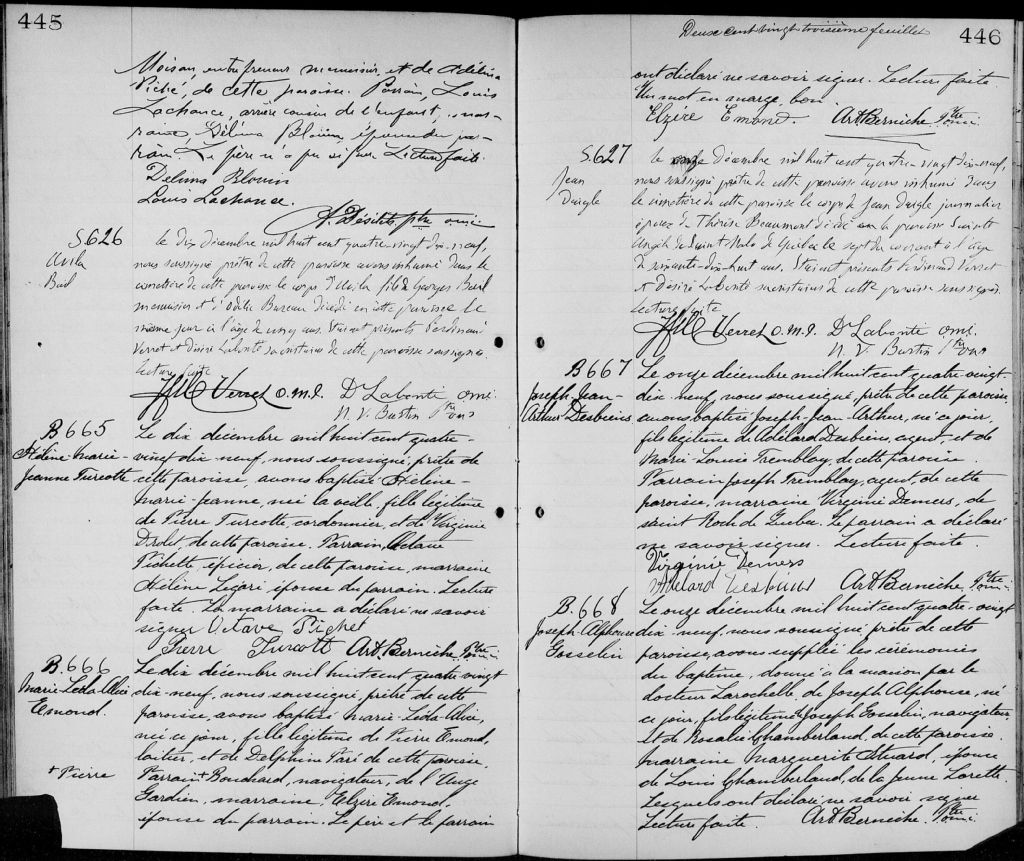 445
Moisan, entrepreneur menuisier, et de Adélina
Piché, de cette paroisse. Parrain, Louis
Lachance, arrière cousin de l'enfant, mar-
raine, Délima Blouin, épouse du par-
rain. Le père n'a pu signer Lecture faite.
Delima Blouin
Louis Lachance.
A. Désilets, ptre omi
S.626
le dix décembre mil huit cent quatre-vingt dix-neuf,
nous soussigné prêtre de cette paroisse avons inhumé dans le
cimetière de cette paroisse le corps d' fils de Georges
menuisier et d' Odélie Bureau décédé en cette paroisse le
même jour à l'âge de cinq ans. Étaient présents Ferdinand
Verret et Désiré Labonté sacristains de cette paroisse soussignés.
Lecture faite
Verret O.M.I. D Labonté omi
N. V. Burtin Ptre omi
B665
Hélène-Marie-
Jeanne Turcotte
Le dix décembre mil huit cent quatre-
vingt dix-neuf, nous soussigné, prêtre de
cette paroisse, avons baptisé Hélène-
Marie-Jeanne, née la veille, fille légitime
de Pierre Turcotte, cordonnier, et de Virginie
Drolet de cette paroisse. Parrain, Octave
Pichette, épicier, de cette paroisse, marraine
Hélène Légaré épouse du parrain. Lecture
faite. La marraine a déclaré ne savoir
signer Octave Pichet
Pierre Turcott Art. Berneche, Ptre o.m.i.
B.666
Marie Léda Alice
Emond.
Le dix décembre mil huit cent quatre vingt
dix-neuf, nous soussigné, prêtre de cette
paroisse, avons baptisé Marie-Léda-Alice,
née ce jour, fille légitime de Pierre Emond,
laitier, et de Delphine Paré de cette paroisse,
+ Pierre
Parrain + Bouchard, navigateur, de l'Ange
Gardien, marraine, Elzire Emond,
épouse du parrain. Le père et le parrain
Deux cent vingt troisième feuillet
446
ont déclaré ne savoir signer. Lecture faite.
Un mot en marge, bon.
Elzire Emond. Art. Berneche, Ptre o.m.i.
S.627
Jean
Daigle
le onze décembre mil huit cent quatre-vingt dix-neuf,
nous soussigné prêtre de cette paroisse avons inhumé dans
le cimetière de cette paroisse le corps de Jean Daigle journalier
époux de Thérèse Beaumont décédé en la paroisse Sainte
Angèle de Saint Malo de Québec le sept du courant à l'âge
de soixante-dix-huit ans. Étaient présents Ferdinand Verret
et Désiré Labonté sacristains de cette paroisse soussignés.
Lecture faite
Verret O.M.I. D Labonté omi
N. V. Burtin Ptre omi
B667
Joseph-Jean-
Arthur Desbiens
Le onze décembre mil huit cent quatre-vingt
dix-neuf, nous soussigné, prêtre de cette paroisse
avons baptisé Joseph-Jean-Arthur, né ce jour,
fils légitime de Adélard Desbiens, agent, et de
Marie Louise Tremblay, de cette paroisse.
Parrain Joseph Tremblay, agent, de cette
paroisse, marraine Virginie Demers, de
Saint Roch de Québec. Le parrain a déclaré
ne savoir signer. Lecture faite.
Virginie Demers
Adelard Desbiens Art. Berneche, Ptre o.m.i.
B.668
Joseph Alphonse
Gosselin
Le onze décembre mil huit cent quatre-vingt
dix-neuf, nous soussigné prêtre de cette
paroisse, avons suppléé les cérémonies
du baptême, donné à la maison par le
docteur Larochelle de Joseph Alphonse, né
ce jour, fils légitime de Joseph Gosselin, navigateur
et de Rosalie Chamberland, de cette paroisse.
Marraine Marguerite Stuard, épouse
de Louis Chamberland, de la Jeune Lorette.
Lesquels ont déclaré ne savoir signer
Lecture faite. Art. Berneche, Ptre o.m.i.